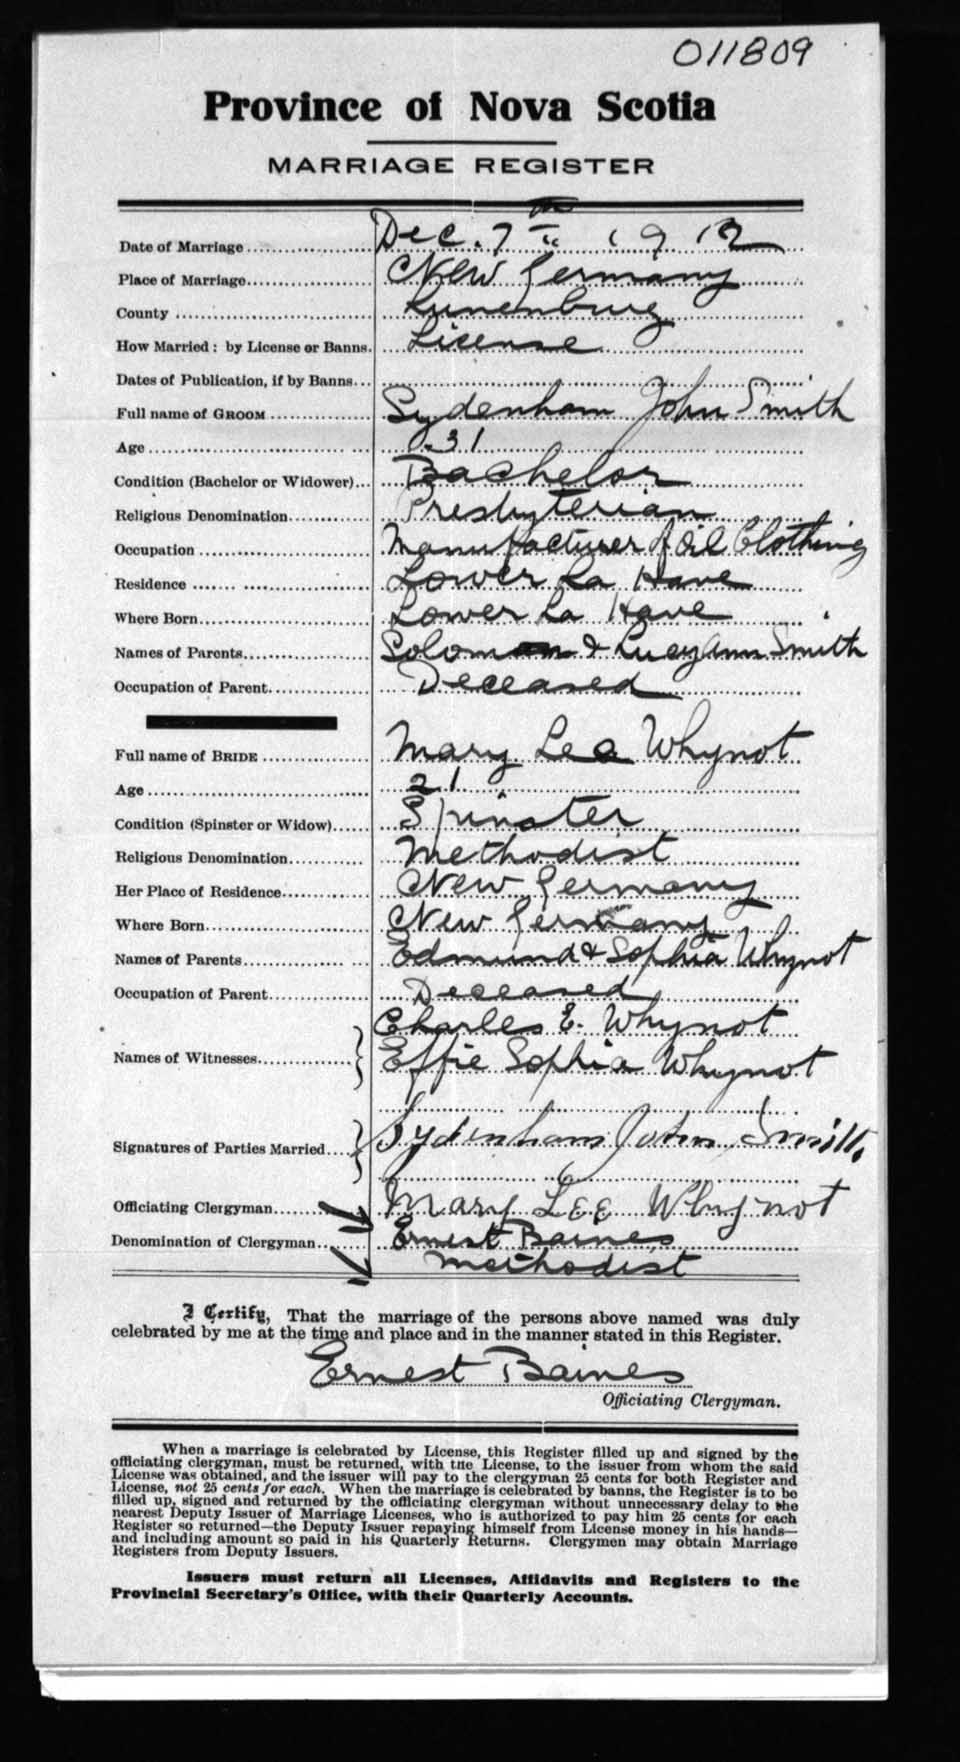 011809
Province of Nova Scotia
MARRIAGE REGISTER
Date of Marriage Dec. 7th 1912
Place of Marriage New Germany
County Lunenburg
How Married: by License or Banns. License
Dates of Publication, if by Banns
Full name of GROOM Sydenham John Smith
Age 31
Condition (Bachelor or Widower) Bachelor
Religious Denomination Presbyterian
Occupation Manufacturer of Oil Clothing
Residence Lower La Have
Where Born Lower La Have
Names of Parents Solomon & Lucy Ann Smith
Occupation of Parent Deceased
Full name of BRIDE Mary Lee Whynot
Age 21
Condition (Spinster or Widow) Spinster
Religious Denomination Methodist
Her Place of Residence New Germany
Where Born New Germany
Names of Parents Edmund & Sophia Whynot
Occupation of Parent Deceased
Charles E. Whynot
Names of Witnesses Effie Sophia Whynot
Signatures of Parties Married Sydenham John Smith.
Officiating Clergyman Mary Lee Whynot
Denomination of Clergyman Ernest Baines
Methodist
I Certify, That the marriage of the persons above named was duly
celebrated by me at the time and place and in the manner stated in this Register.
Ernest Baines
Officiating Clergyman.
When a marriage is celebrated by License, this Register filled up and signed by the
officiating clergyman, must be returned, with the License, to the issuer from whom the said
License was obtained, and the issuer will pay to the clergyman 25 cents for both Register and
License, not 25 cents for each. When the marriage is celebrated by banns, the Register is to be
filled up, signed and returned by the officiating clergyman without unnecessary delay to the
nearest Deputy Issuer of Marriage Licenses, who is authorized to pay him 25 cents for each
Register so returned—the Deputy Issuer repaying himself from License money in his hands—
and including amount so paid in his Quarterly Returns. Clergymen may obtain Marriage
Registers from Deputy Issuers.
Issuers must return all Licenses, Affidavits and Registers to the
Provincial Secretary's Office, with their Quarterly Accounts.